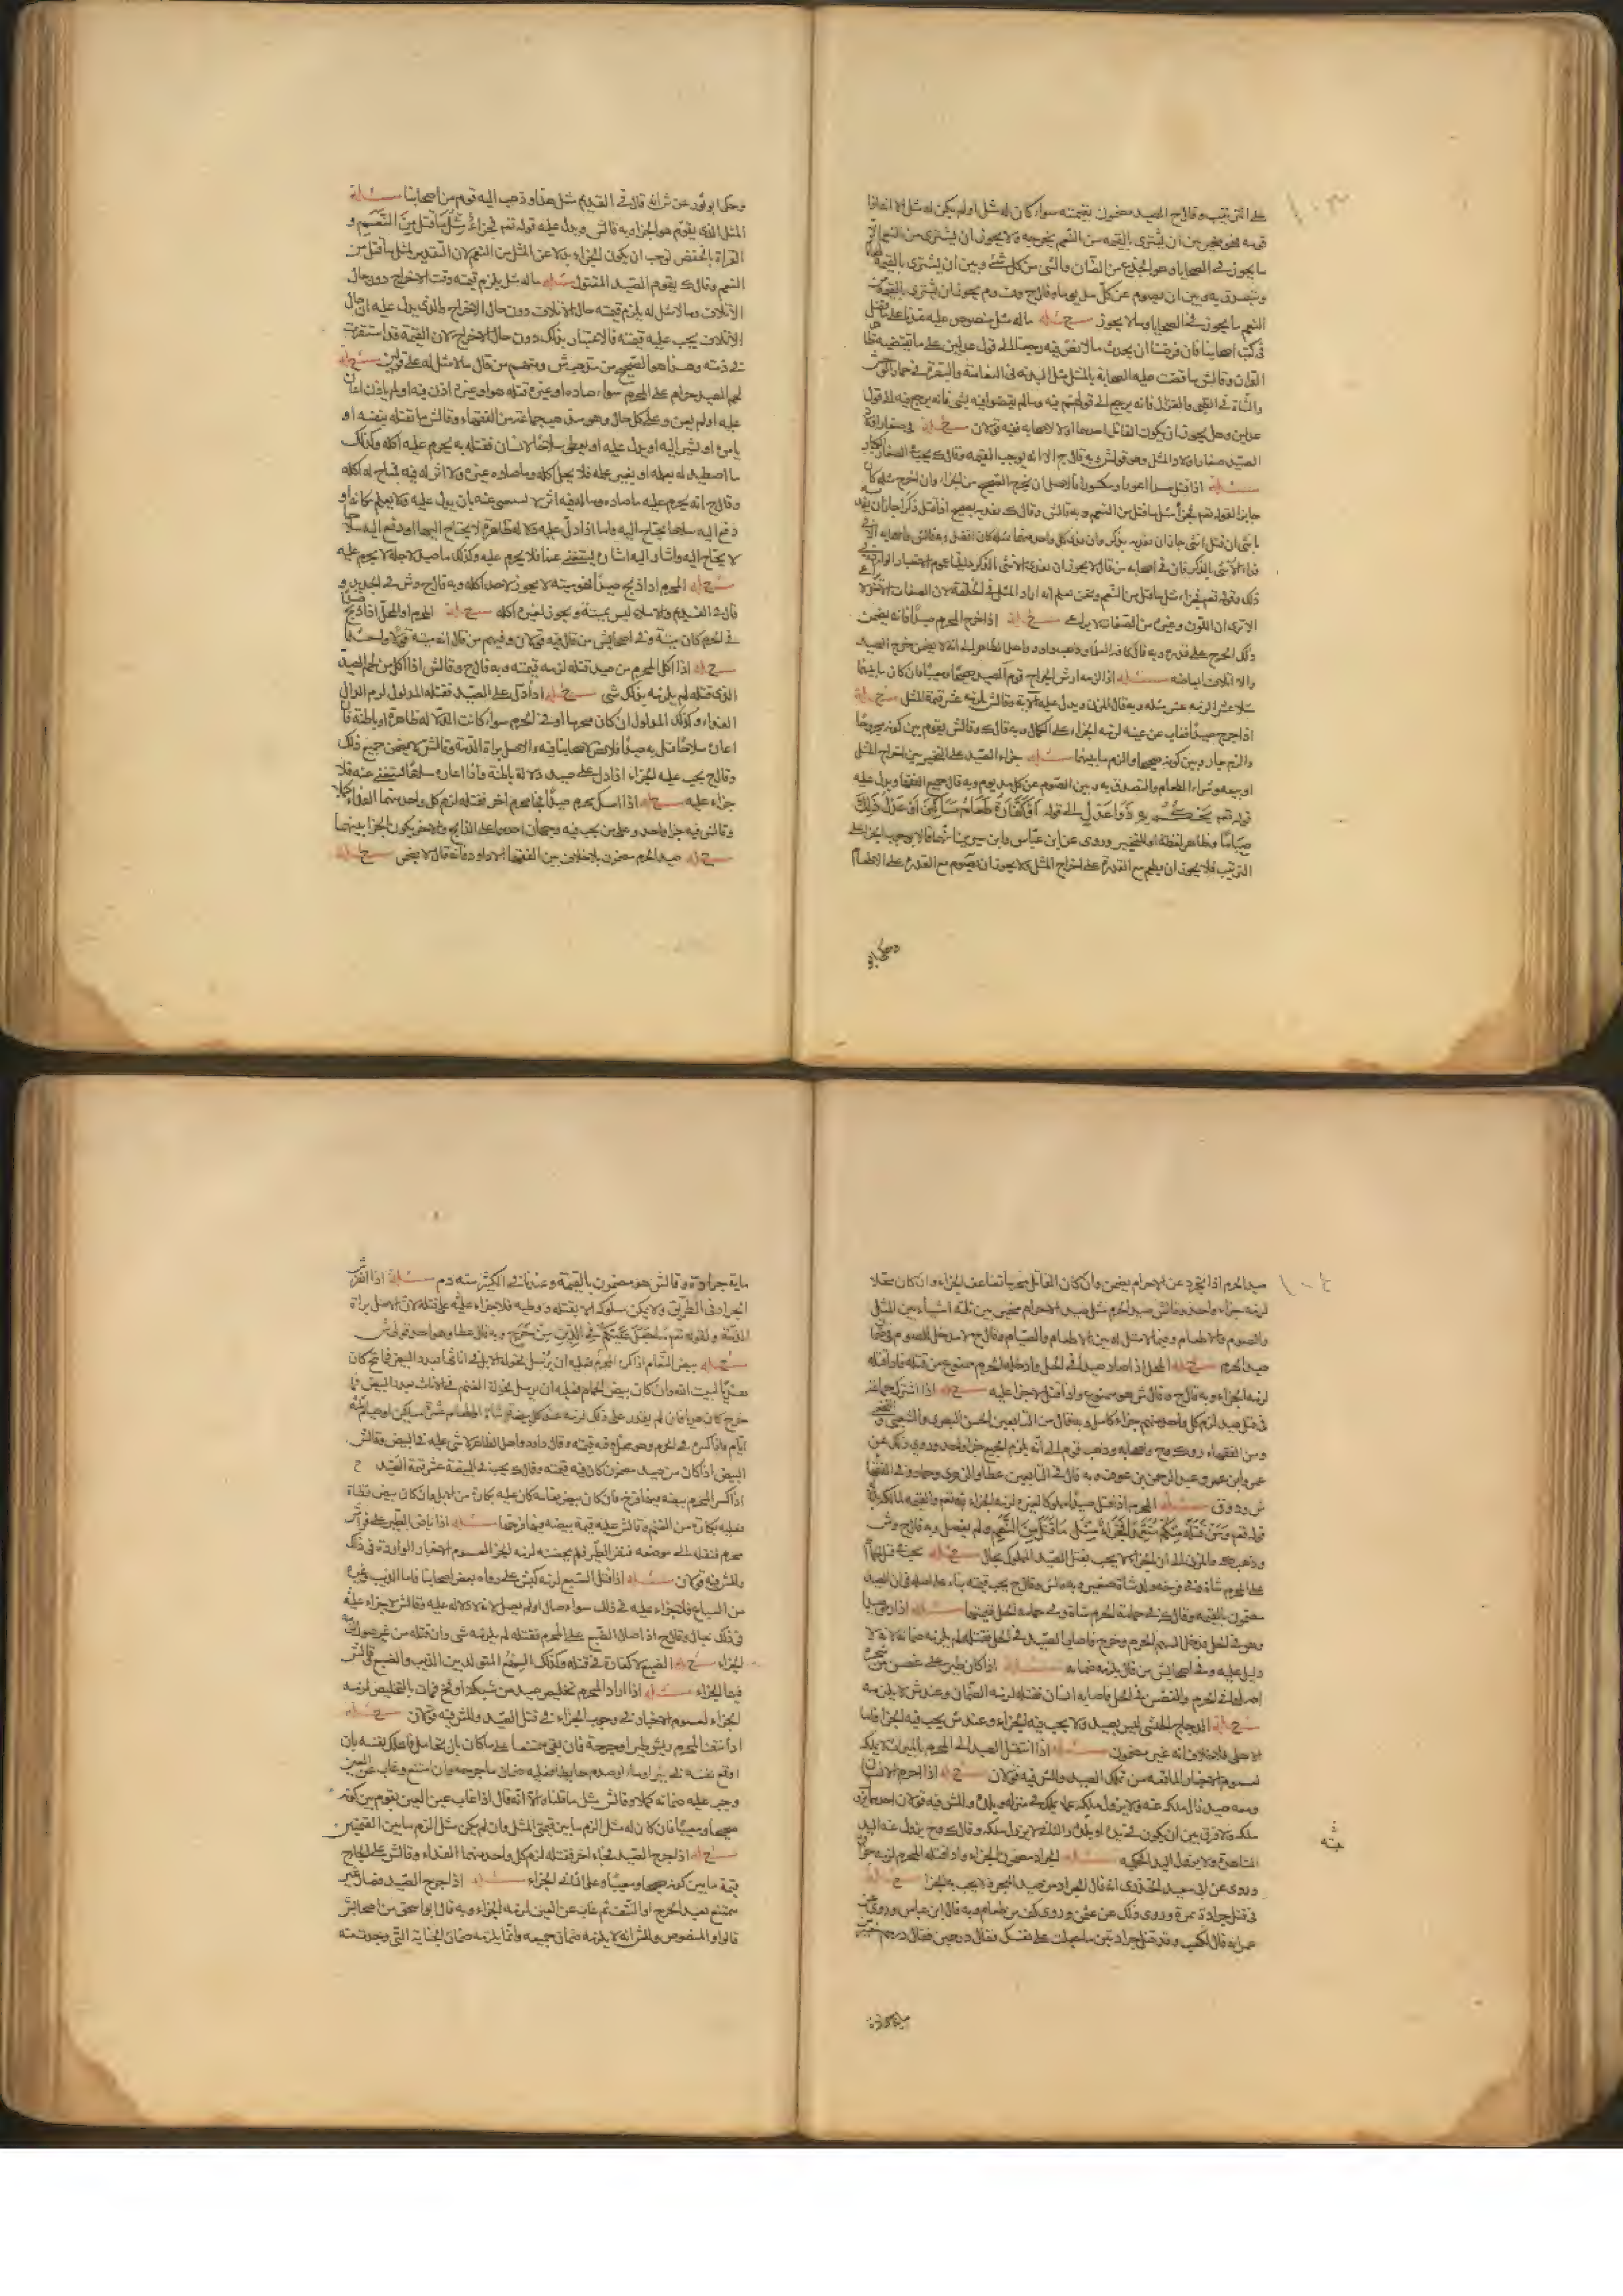 على الترتيب وقال ح الصيد مضمون بقيمته سواء كان له مثل او لم يكن له مثل الا انه اذا
قومه فهو مخير بين ان يشترى بالقيمه من النعم يخرجه ولا يجوز ان يشترى من النعم الا
ما يجوز فى الضحايا وهو الجذع من الضأن والثنى من كل شئ وبين ان يشترى بالقيمة
ويتصدق به وبين ان يصوم عن كل مد يوما وقال ح وف وم يجوز ان يشترى بالقيمة
النعم ما يجوز فى الضحايا وما لا يجوز مسئله ما له مثل منصوص عليه عندنا
فى كتب اصحابنا فان فرضنا ان يحدث ما لا نص فيه رجعنا الى قول عدلين على ما يقتضيه
القران وقال ش ما قضت عليه الصحابة بالمثل مثل البدنه فى النعامة والبقرة فى حمار الوحش
والشاة فى الظبى والغزال فانه يرجع الى قولهم فيه وما لم يقضوا فيه بشى فانه يرجع فيه الى قول
عدلين وهل يجوز ان يكون القاتل احدهما او لا لاصحابه فيه قولان مسئله فى صغار اولاد
الصيد صغار اولاد المثل وهو قول ش وبه قال ح الا انه يوجب القيمه وقال ك يجب فى الصغار الكبار
مسئله اذا قتل صيدا اعور او مكسورا فالاصل ان يخرج الصحيح من الجزاء وان اخرج مثله كان
جايزا لقوله تعم فجزاء مثل ما قتل من النعم وبه قال ش وقال ك يفديه بصحيح اذا قتل ذكرا جاز ان
بانثى وان قتل انثى جاز ان يفديه بذكر وان فدى كل واحد منهما بمثله كان افضل
ذلك وقوله تعم فجزاء مثل ما قتل من النعم ونحن نعلم انه اراد المثل فى الخلقة لان الصفات
الا ترى ان اللون وغيره من الصفات لا يراعى مسئله اذا جرح المحرم صيدا فانه يضمن
ذلك الجرح على قدره وبه قال كافة الفقهاء وذهب داود واهل الظاهر الى انه لا يضمن جرح الصيد
والا اتلاف ابعاضه مسئله اذا لزمه ارش الجراح قوم الصيد صحيحا ومعيبا فان كان ما بينهما
مثلا عشرا لزمه عشر مثله وبه قال المزنى ويدل عليه الاية وقال ش يلزمه عشر قيمة المثل مسئله
اذا جرح صيدا فغاب عن عينه لزمه الجزاء على الكمال وبه قال ك وقال ش يقوم بين كونه مجروحا
والدم جار وبين كونه صحيحا والزم ما بينهما مسئله جزاء الصيد على التخيير بين اخراج المثل
او بيعه وشراء الطعام والتصدق به وبين الصوم عن كل مد يوم وبه قال جميع الفقهاء ويدل عليه
قوله تعم يحكم به ذوا عدل الى قوله او كفارة طعام مساكين او عدل ذلك
صياما وظاهر لفظة او للتخيير وروى عن ابن عباس وابن سيرين انهما قالا بوجوب الجزاء على
الترتيب فلا يجوز ان يطعم مع القدرة على اخراج المثل ولا يجوز ان يصوم مع القدرة على الاطعام
وحكى ابو ثور عن ش انه قال فى القديم مثل هذا وذهب اليه قوم من اصحابنا مسئله
المثل الذى يقوم هو الجزاء وبه قال ش ويدل عليه قوله تعم فجزاء مثل ما قتل من النعم و
القراة بالخفض توجب ان يكون الجزاء بدلا عن المثل من النعم لان التقدير مثل ما قتل من
النعم وقال ك يقوم الصيد المقتول مسئله ما له مثل يلزم قيمته وقت الاخراج دون حال
الاتلاف وما لا مثل له يلزم قيمته حال الاتلاف دون حال الاخراج والذى يدل عليه ان حال
الاتلاف يجب عليه قيمته فالاعتبار بذلك دون حال الاخراج لان القيمة قد استقرت
فى ذمته وهذا هو الصحيح من مذهب ش ومنهم من قال ما لا مثل له على قولين مسئله
لحم الصيد حرام على المحرم سواء صاده او غيره قتله هو او غيره اذن فيه او لم ياذن اعان
عليه او لم يعن وعلى كل حال وهو مذهب جماعة من الفقهاء وقال ش ما يقتله بنفسه او
يامر او يشير اليه او يدل عليه او يعطى سلاحا لانسان فقتله به يحرم عليه اكله وكذلك
ما اصطيد له بعلمه او بغير علمه فلا يحل اكله وما صاده غيره ولا اثر له فيه فمباح له اكله
وقال ح انه يحرم عليه ما صاده وما له فيه اثر لا يستغنى عنه بان يدل عليه ولا يعلم مكانه او
دفع اليه سلاحا يحتاج اليه واما اذا دل عليه دلالة ظاهرة لا يحتاج اليها او دفع اليه سلاحا
لا يحتاج اليه واشار اليه اشارة يستغنى عنها فلا يحرم عليه وكذلك ما صيد لاجله لا يحرم عليه
مسئله المحرم اذا ذبح صيدا فهو ميته لا يجوز لاحد اكله وبه قال ح وش فى الجديد و
قال فى القديم والاملاء ليس بميتة ويجوز لغيره اكله مسئله المحرم او المحل اذا ذبح صيدا
فى الحرم كان ميتة وفى اصحاب ش من قال فيه قولان وفيهم من قال انه ميتة قولا واحدا
مسئله اذا اكل المحرم من صيد قتله لزمه قيمته وبه قال ح وقال ش اذا اكل من لحم الصيد
الذى قتله لم يلزمه بذلك شى مسئله اذا دل على الصيد فقتله المدلول لزم الدال
الفداء وكذلك المدلول ان كان محرما او فى الحرم سواء كانت الدلالة ظاهرة او باطنة فان
اعان سلاحا قتل به صيدا فلا نص لاصحابنا فيه والاصل براة الذمة وقال ش لا يضمن جميع ذلك
وقال ح يجب عليه الجزاء اذا دل على صيد دلالة باطنة واذا اعان سلاحا يستغنى عنه فلا
جزاء عليه مسئله اذا امسك محرم صيدا فجاء محرم اخر فقتله لزم كل واحد منهما الفداء كاملا
وقال ش فيه جزاء واحد وعلى من يجب فيه وجهان احدهما على الذابح والاخر يكون الجزاء بينهما
مسئله صيد الحرم مضمون بلا خلاف بين الفقهاء الا داود فانه قال لا يضمن مسئله
صيد الحرم اذا تجرد عن الاحرام يضمن وان كان القاتل محرما تضاعف الجزاء وان كان محلا
لزمه جزاء واحد وقال ش صيد الحرم مثل صيد الاحرام مخير بين ثلثه اشياء بين المثل
والصوم والاطعام وفيما لا مثل له بين الاطعام والصيام وقال ح لا مدخل للصوم فى
صيد الحرم مسئله المحل اذا صاد صيدا فى الحل وادخله الحرم ممنوع من قتله فاذا قتله
لزمه الجزاء وبه قال ح وقال ش هو ممنوع واذا قتل لا جزا عليه مسئله اذا اشترك جماعة
فى قتل صيد لزم كل واحد منهم جزاء كامل وبه قال من التابعين الحسن البصرى والشعبى والنخعى
ومن الفقهاء ر وك وح واصحابه وذهب قوم الى انه يلزم الجميع جزا واحد وروى ذلك عن
عمر وابن عمر وعبد الرحمن بن عوف وبه قال فى التابعين عطا والزهرى وحماد وفى الفقها
ش ود وق مسئله المحرم اذا قتل صيدا مملوكا لغيره لزمه الجزاء
قوله تعم ومن قتله منكم متعمدا فجزاء مثل ما قتل من النعم ولم يفصل وبه قال ح وش
وذهب ك والمزنى الى ان الجزاء لا يجب بقتل الصيد المملوك بحال مسئله
على المحرم شاة وفى فرخه ولد شاة صغير وبه قال ش وقال ح يجب قيمته بناء على اصله فى ان الصيد
مضمون بالقيمه وقال ك فى حمامة الحرم شاة وفى حمامة الحل قيمتها مسئله اذا رمى صيدا
وهو فى الحل فدخل السهم الحرم وخرج فاصاب الصيد فى الحل فقتله لم يلزمه ضمانه لانه لا
دليل عليه وفى اصحاب ش من قال يلزمه ضمانه مسئله اذا كان طير على غصن من شجرة
اصلها فى الحرم والغصن فى الحل فاصابه انسان فقتله لزمه الضمان وعند ش لا يلزمه
مسئله الدجاج الحبشى ليس بصيد ولا يجب فيه الجزاء وعند ش يجب فيه الجزا فاما
الاهلى فلا خلاف انه غير مضمون مسئله اذا انتقل الصيد الى المحرم بالميراث لا يملكه
لعموم الاخبار المانعه من تملك الصيد ولل ش فيه قولان مسئله اذا احرم الانسان
ومعه صيد زال ملكه عنه ولا يزول ملكه عما يملكه فى منزله وبلده ولل ش فيه قولان احدهما يزول
ملكه ولا فرق بين ان يكون فى يده او بلده والثانى لا يزول ملكه وقال ك وح يزول عنه اليد
المشاهدة ولا يزول اليد الحكميه مسئله الجراد مضمون بالجزاء واذا قتله المحرم لزمه جزا
وروى عن ابى سعيد الخدرى انه قال الجراد من صيد البحر ولا يجب به الجزا مسئله
فى قتل جرادة تمرة وروى ذلك عن عمر وروى كف من طعام وبه قال ابن عباس وروى
عمر انه قال لكعب وقد قتل جرادتين ما جعلت على نفسك فقال درهمين فقال درهم خير
ماية جرادة
ماية جرادة وقال ش هو مضمون بالقيمة وعندنا فى الكثير منه دم مسئله اذا انفرش
الجراد فى الطريق ولا يمكن سلوكه الا بقتله ووطيه فلا جزاء عليه فى قتله لان الاصل براة
الذمة ولقوله تعم ما جعل عليكم فى الدين من حرج وبه قال عطا وهو احد قولى ش
مسئله بيض النعام اذا كسره المحرم فعليه ان يرسل فحولة الابل فى اناثها بعدد البيض فما نتج كان
هديا لبيت الله وان كان بيض الحمام فعليه ان يرسل فحولة الغنم فى الاناث بعدد البيض فما
خرج كان هديا فان لم يقدر على ذلك لزمه عن كل بيضة شاة او اطعام عشرة مساكين او صيام ثلثة
ايام وقال ش البيض
البيض اذا كان من صيد مضمون كان فيه قيمته وقال ك يجب فى البيضة عشر قيمة الصيد
اذا كسر المحرم بيضه فيها فرخ فان كان بيض نعامه كان عليه بكارة من الابل وان كان بيض قطاة
فعليه بكارة من الغنم وقال ش عليه قيمة بيضه فيها فرخها مسئله اذا باض الطير على فراش
محرم فنقله الى موضعه فنفر الطير فلم يحضنه لزمه الجزا لعموم الاخبار الواردة فى ذلك
ولل ش فيه قولان مسئله اذا قتل السبع لزمه كبش على رواه بعض اصحابنا فاما الذئب وغيره
من السباع فلا جزاء عليه فى ذلك سواء صال او لم يصل لانه لا دلاله عليه وقال ش لا جزاء عليه
فى ذلك بحال وقال ح اذا صال السبع على المحرم فقتله لم يلزمه شى وان قتله من غير صول لزمه
الجزاء مسئله الضبع لا كفارة فى قتله وكذلك السمع المتولد بين الذئب والضبع وقال ش
فيهما الجزاء مسئله اذا اراد المحرم تخليص صيد من شبكة او فخ فمات بالتخليص لزمه
الجزاء لعموم الاخبار فى وجوب الجزاء فى قتل الصيد ولل ش فيه قولان مسئله
اذا نتف المحرم ريش طير او جرحه فان بقى ممتنعا على ما كان بان تحامل فاهلك نفسه بان
اوقع نفسه فى بئر او ماء او صدم حايطا فعليه ضمان ما جرحه وان امتنع وغاب عن العين
وجب عليه ضمانه كملا وقال ش مثل ما قلناه الا انه قال اذا غاب عن العين يقوم بين كونه
صحيحا ومعيبا فان كان له مثل الزم ما بين قيمتى المثل وان لم يكن مثل الزم ما بين القيمتين
مسئله اذا جرح الصيد فجاء اخر فقتله لزم كل واحد منهما الفداء وقال ش على الجارح
قيمة ما بين كونه صحيحا ومعيبا وعلى الثانى الجزاء مسئله اذا جرح الصيد فصار غير
ممتنع بعد الجرح او النتف ثم غاب عن العين لزمه الجزاء وبه قال ابو اسحق من اصحاب ش
قالوا والمنصوص لل ش انه لا يلزمه ضمان جميعه وانما يلزمه ضمان الجناية التى وجدت منه